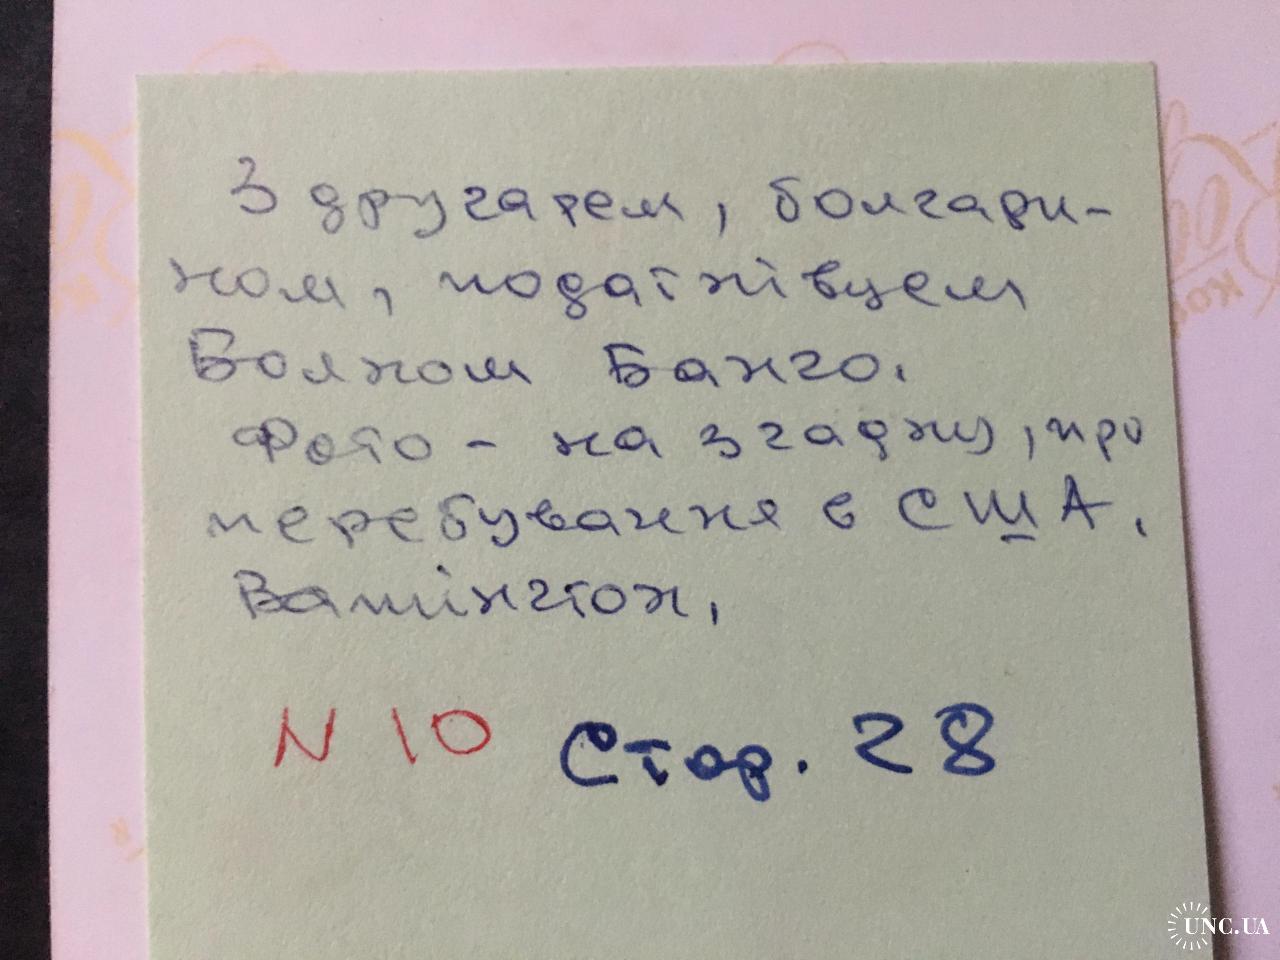 З другарем, болгари-
ном, податнівцем
Бояном Банго.
Фото - на згадку, про
перебування в США.
Вашінгтон,
N 10 Стор. 28
UNC.UA